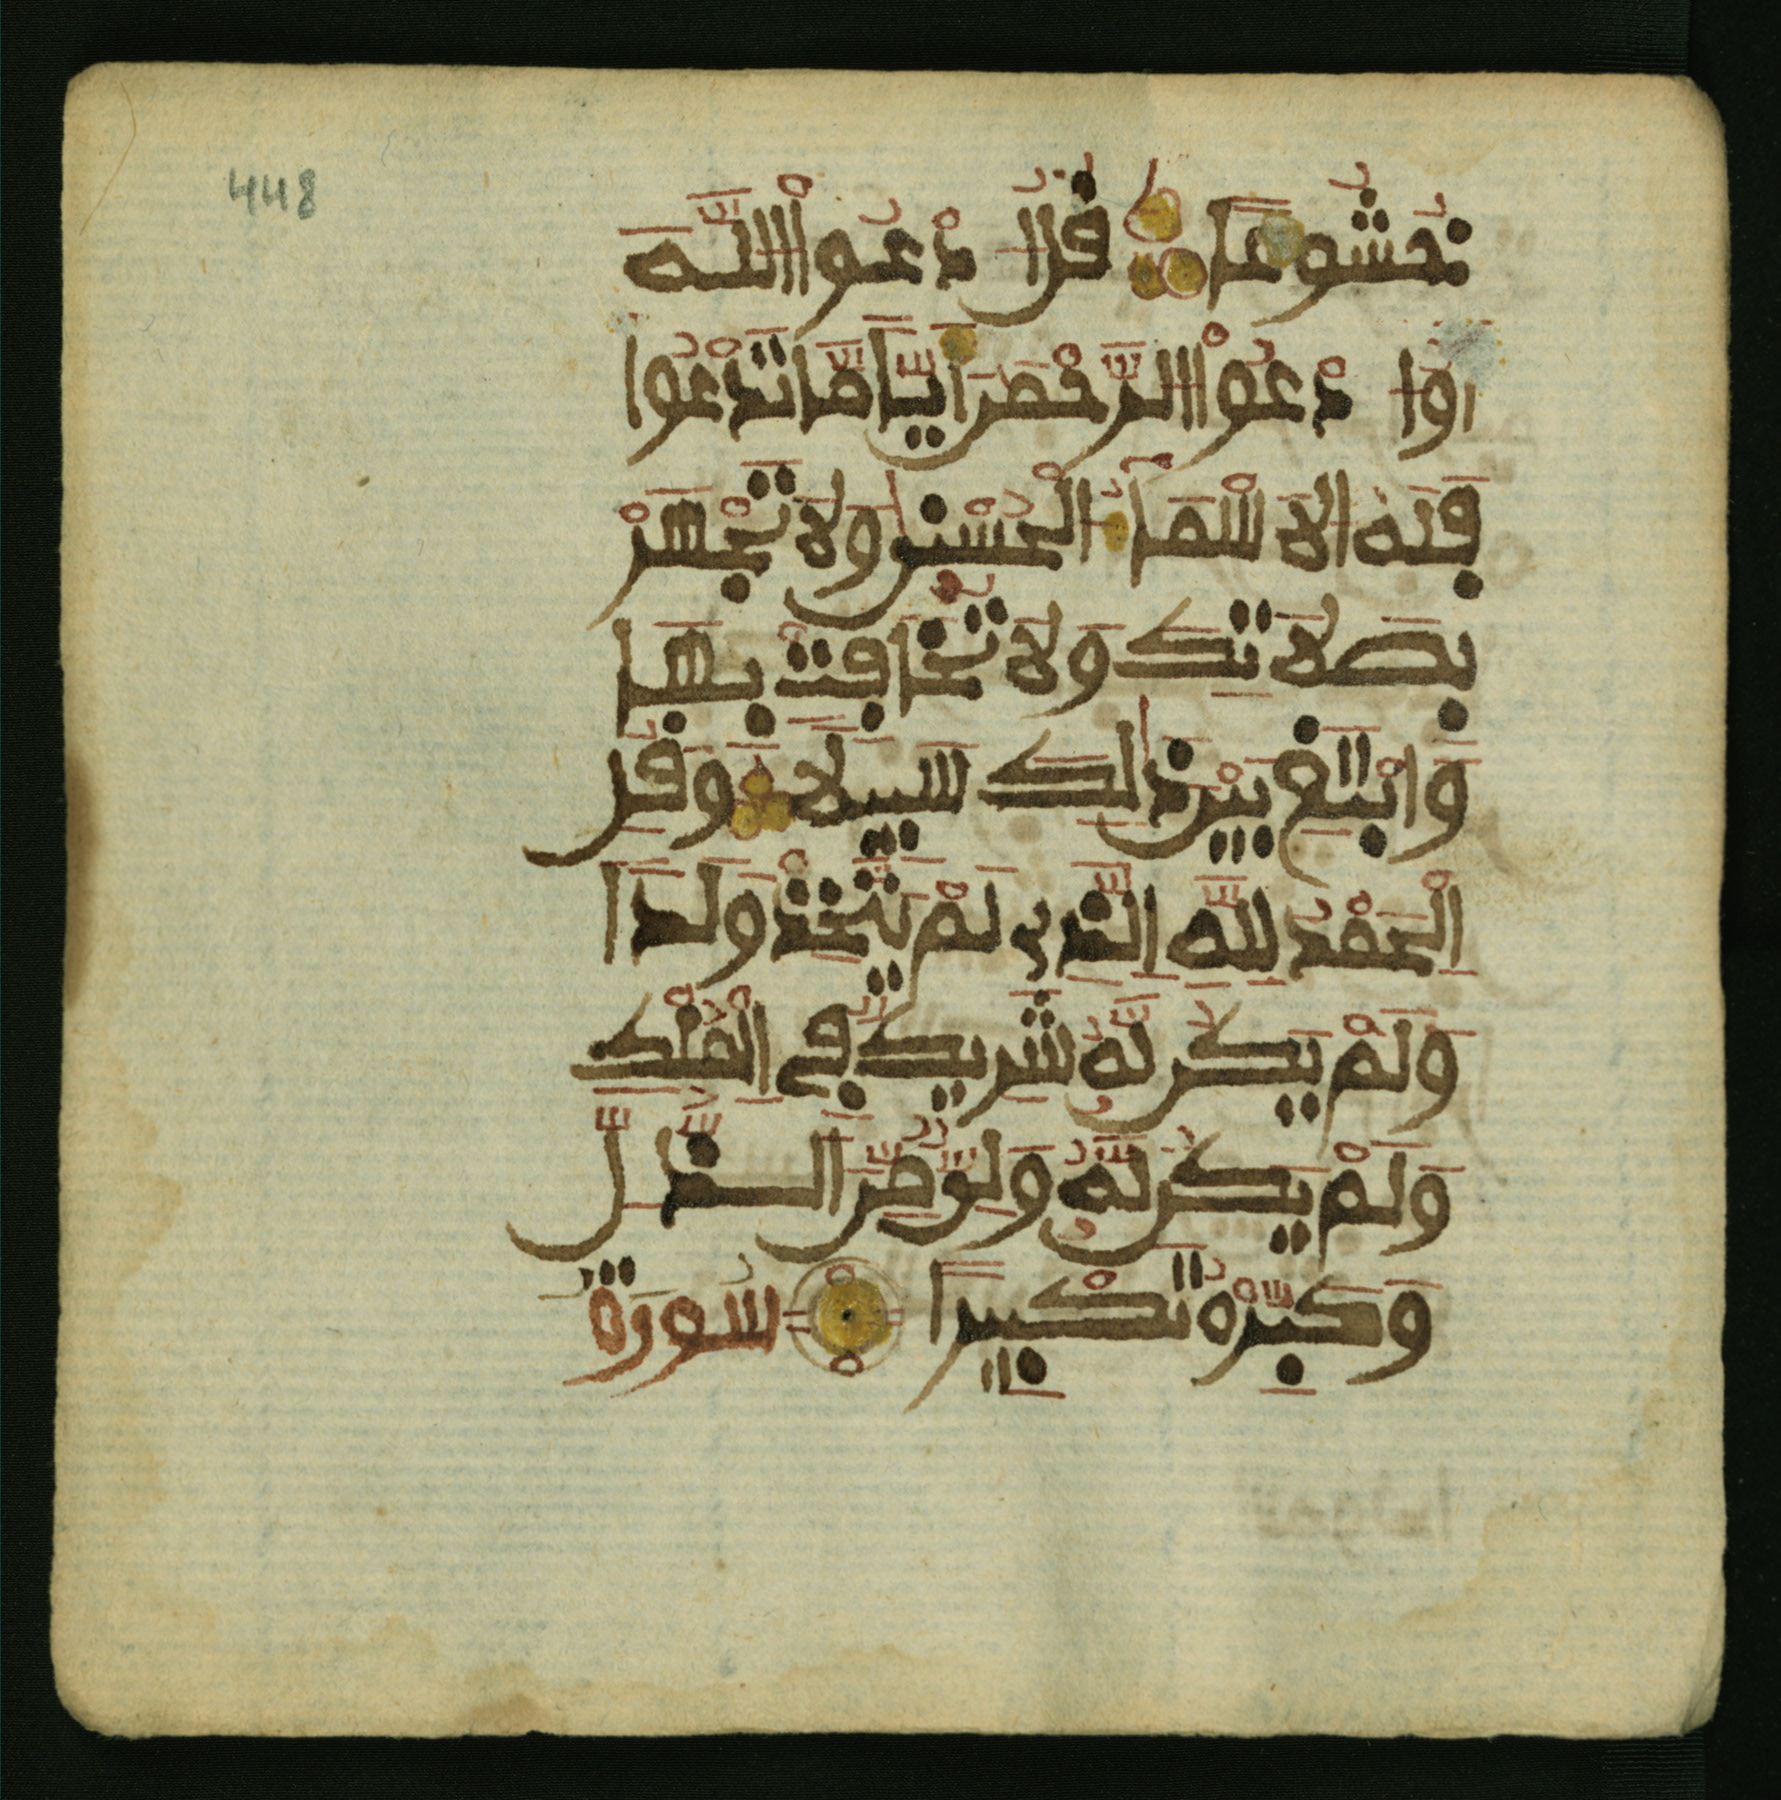 448
خشوعا قل ادعوا الله
اوا دعوا الرحمن ايا ما تدعوا
فله الاسما الحسنى ولا تجهر
بصلاتك ولا تخافت بها
وابتغ بين ذلك سبيلا وقل
الحمد لله الذي لم يتخذ ولدا
ولم يكن له شريك في الملك
ولم يكن له ولي من الذل
وكبره تكبيرا سورة